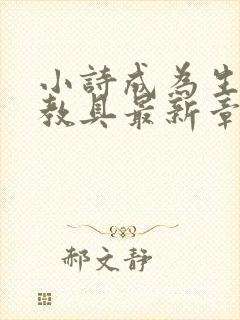 小詩成為生
教具最新章
郝文靜